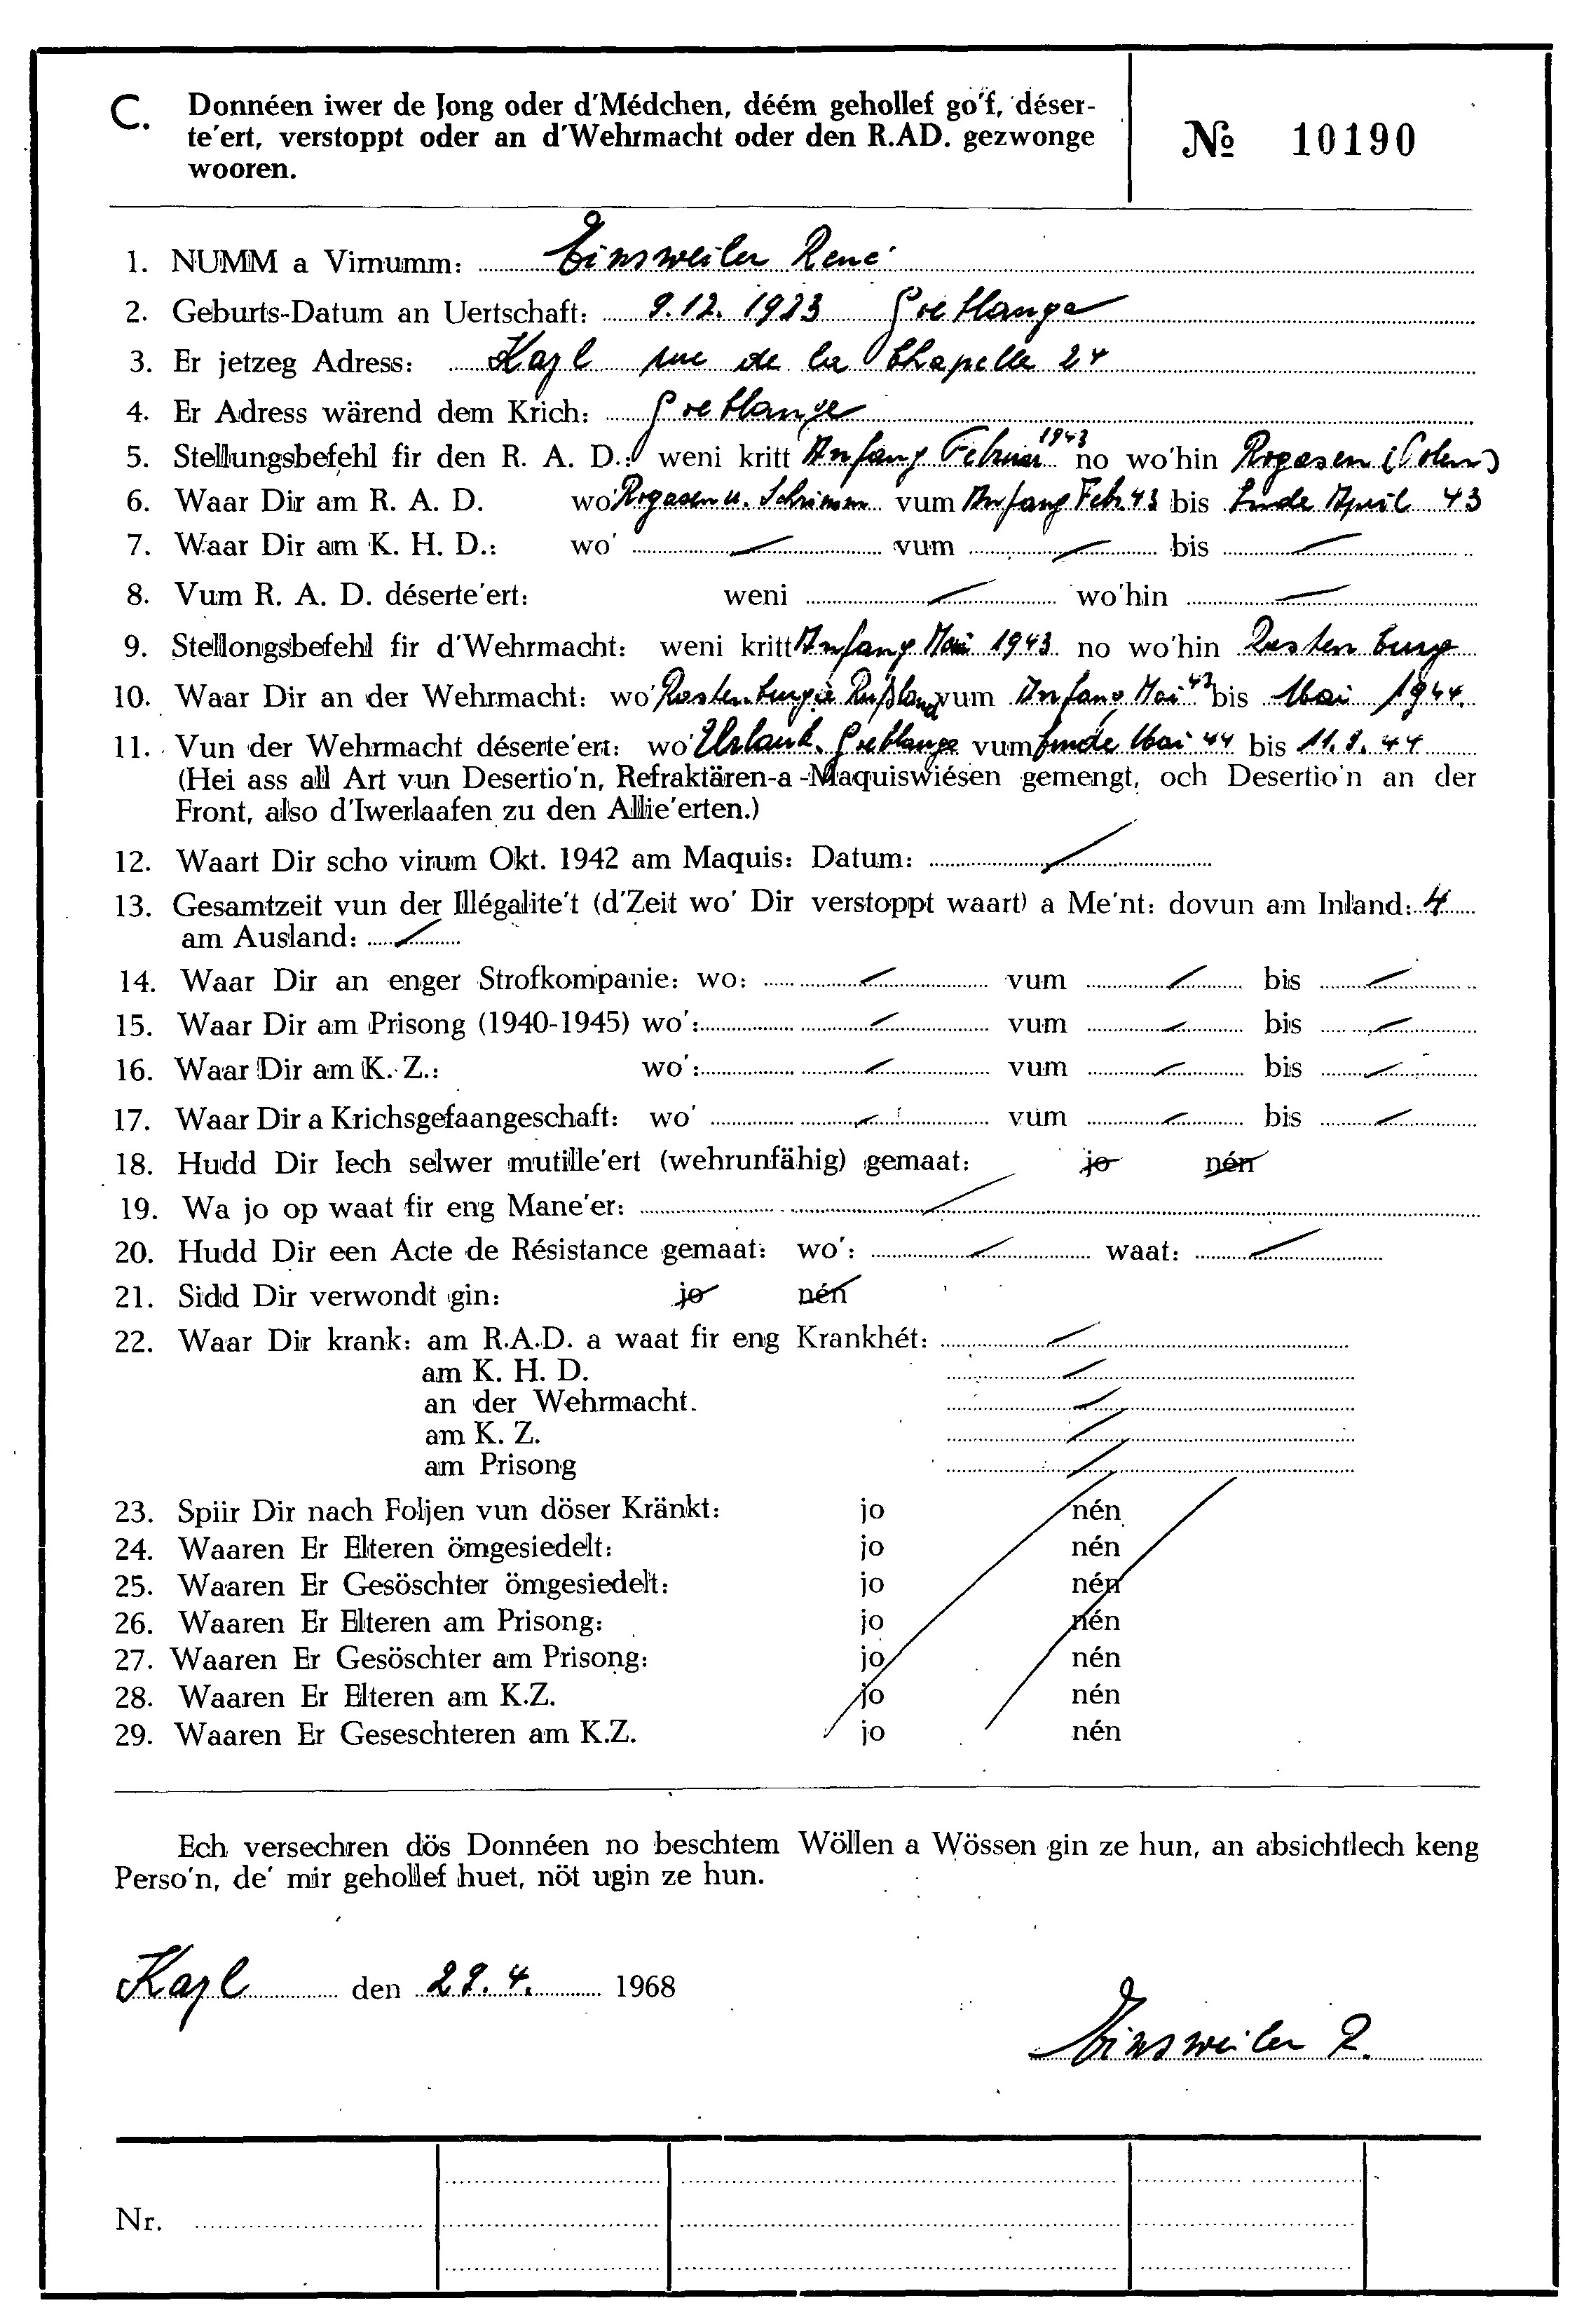 C. Donnéen iwer de Jong oder d'Médchen, déém gehollef go'f, déser-
te'ert, verstoppt oder an d'Wehrmacht oder den R.AD. gezwonge
wooren.
№ 10190
1. NUMM a Virnumm: Einsweiler René
2. Geburts-Datum an Uertschaft: 9.12.1923 Greblange
3. Er jetzeg Adress: Kayl rue de la Chapelle 24
4. Er Adress wärend dem Krich: Greblange
5. Stellungsbefehl fir den R. A. D.: weni kritt Anfang Februar 1943 no wo'hin Rogasen (Polen)
6. Waar Dir am R. A. D. wo' Rogasen u. Schrimm vum Anfang Feb. 43 bis Ende April 43
7. Waar Dir am K. H. D.: wo' — vum — bis —
8. Vum R. A. D. déserte'ert: weni — wo'hin —
9. Stellongsbefehl fir d'Wehrmacht: weni kritt Anfang Mai 1943 no wo'hin Rastenburg
10. Waar Dir an der Wehrmacht: wo' Rastenburg Rußland vum Anfang Mai 43 bis Mai 1944.
11. Vun der Wehrmacht déserte'ert: wo' Urlaub. Greblange vum Ende Mai 44 bis 11.9.44
(Hei ass all Art vun Desertio'n, Refraktären-a-Maquiswiésen gemengt, och Desertio'n an der
Front, also d'Iwerlaafen zu den Allie'erten.)
12. Waart Dir scho virum Okt. 1942 am Maquis: Datum: —
13. Gesamtzeit vun der Illégalite't (d'Zeit wo' Dir verstoppt waart) a Me'nt: dovun am Inland: 4
am Ausland: —
14. Waar Dir an enger Strofkompanie: wo: — vum — bis —
15. Waar Dir am Prisong (1940-1945) wo': — vum — bis —
16. Waar Dir am K. Z.: wo': — vum — bis —
17. Waar Dir a Krichsgefaangeschaft: wo' — vum — bis —
18. Hudd Dir Iech selwer mutille'ert (wehrunfähig) gemaat: jo nén
19. Wa jo op waat fir eng Mane'er: —
20. Hudd Dir een Acte de Résistance gemaat: wo': — waat: —
21. Sidd Dir verwondt gin: jo nén
22. Waar Dir krank: am R.A.D. a waat fir eng Krankhét: —
am K. H. D. —
an der Wehrmacht. —
am K. Z. —
am Prisong —
23. Spiir Dir nach Foljen vun döser Kränkt: jo nén
24. Waaren Er Elteren ömgesiedelt: jo nén
25. Waaren Er Gesöschter ömgesiedelt: jo nén
26. Waaren Er Elteren am Prisong: jo nén
27. Waaren Er Gesöschter am Prisong: jo nén
28. Waaren Er Elteren am K.Z. jo nén
29. Waaren Er Geseschteren am K.Z. jo nén
Ech versechren dös Donnéen no beschtem Wöllen a Wössen gin ze hun, an absichtlech keng
Perso'n, de' mir gehollef huet, nöt ugin ze hun.
Kayl den 29.4. 1968
Einsweiler R.
Nr.